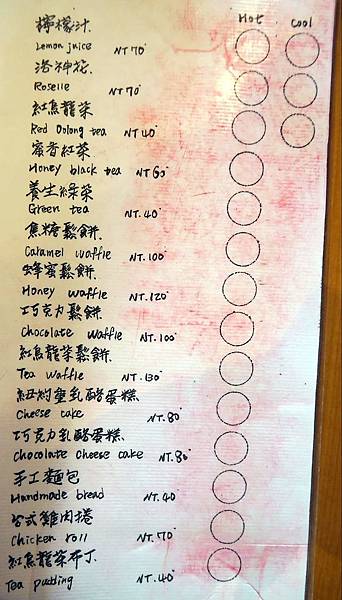 Hot Cool
檸檬汁
Lemon juice NT 70°
洛神花
Roselle NT 70°
紅烏龍茶
Red Oolong tea NT 40°
蜜香紅茶
Honey black tea NT 60°
養生綠茶
Green tea NT.40°
焦糖鬆餅
Caramel waffle NT.100°
蜂蜜鬆餅
Honey waffle NT.120°
巧克力鬆餅
Chocolate waffle NT.100°
紅烏龍茶鬆餅
Tea waffle NT.130°
紐約重乳酪蛋糕
Cheese cake NT.80°
巧克力乳酪蛋糕
Chocolate cheese cake NT.80°
手工麵包
Handmade bread NT.40
台式雞肉捲
Chicken roll NT.70°
紅烏龍茶布丁
Tea pudding NT.40°